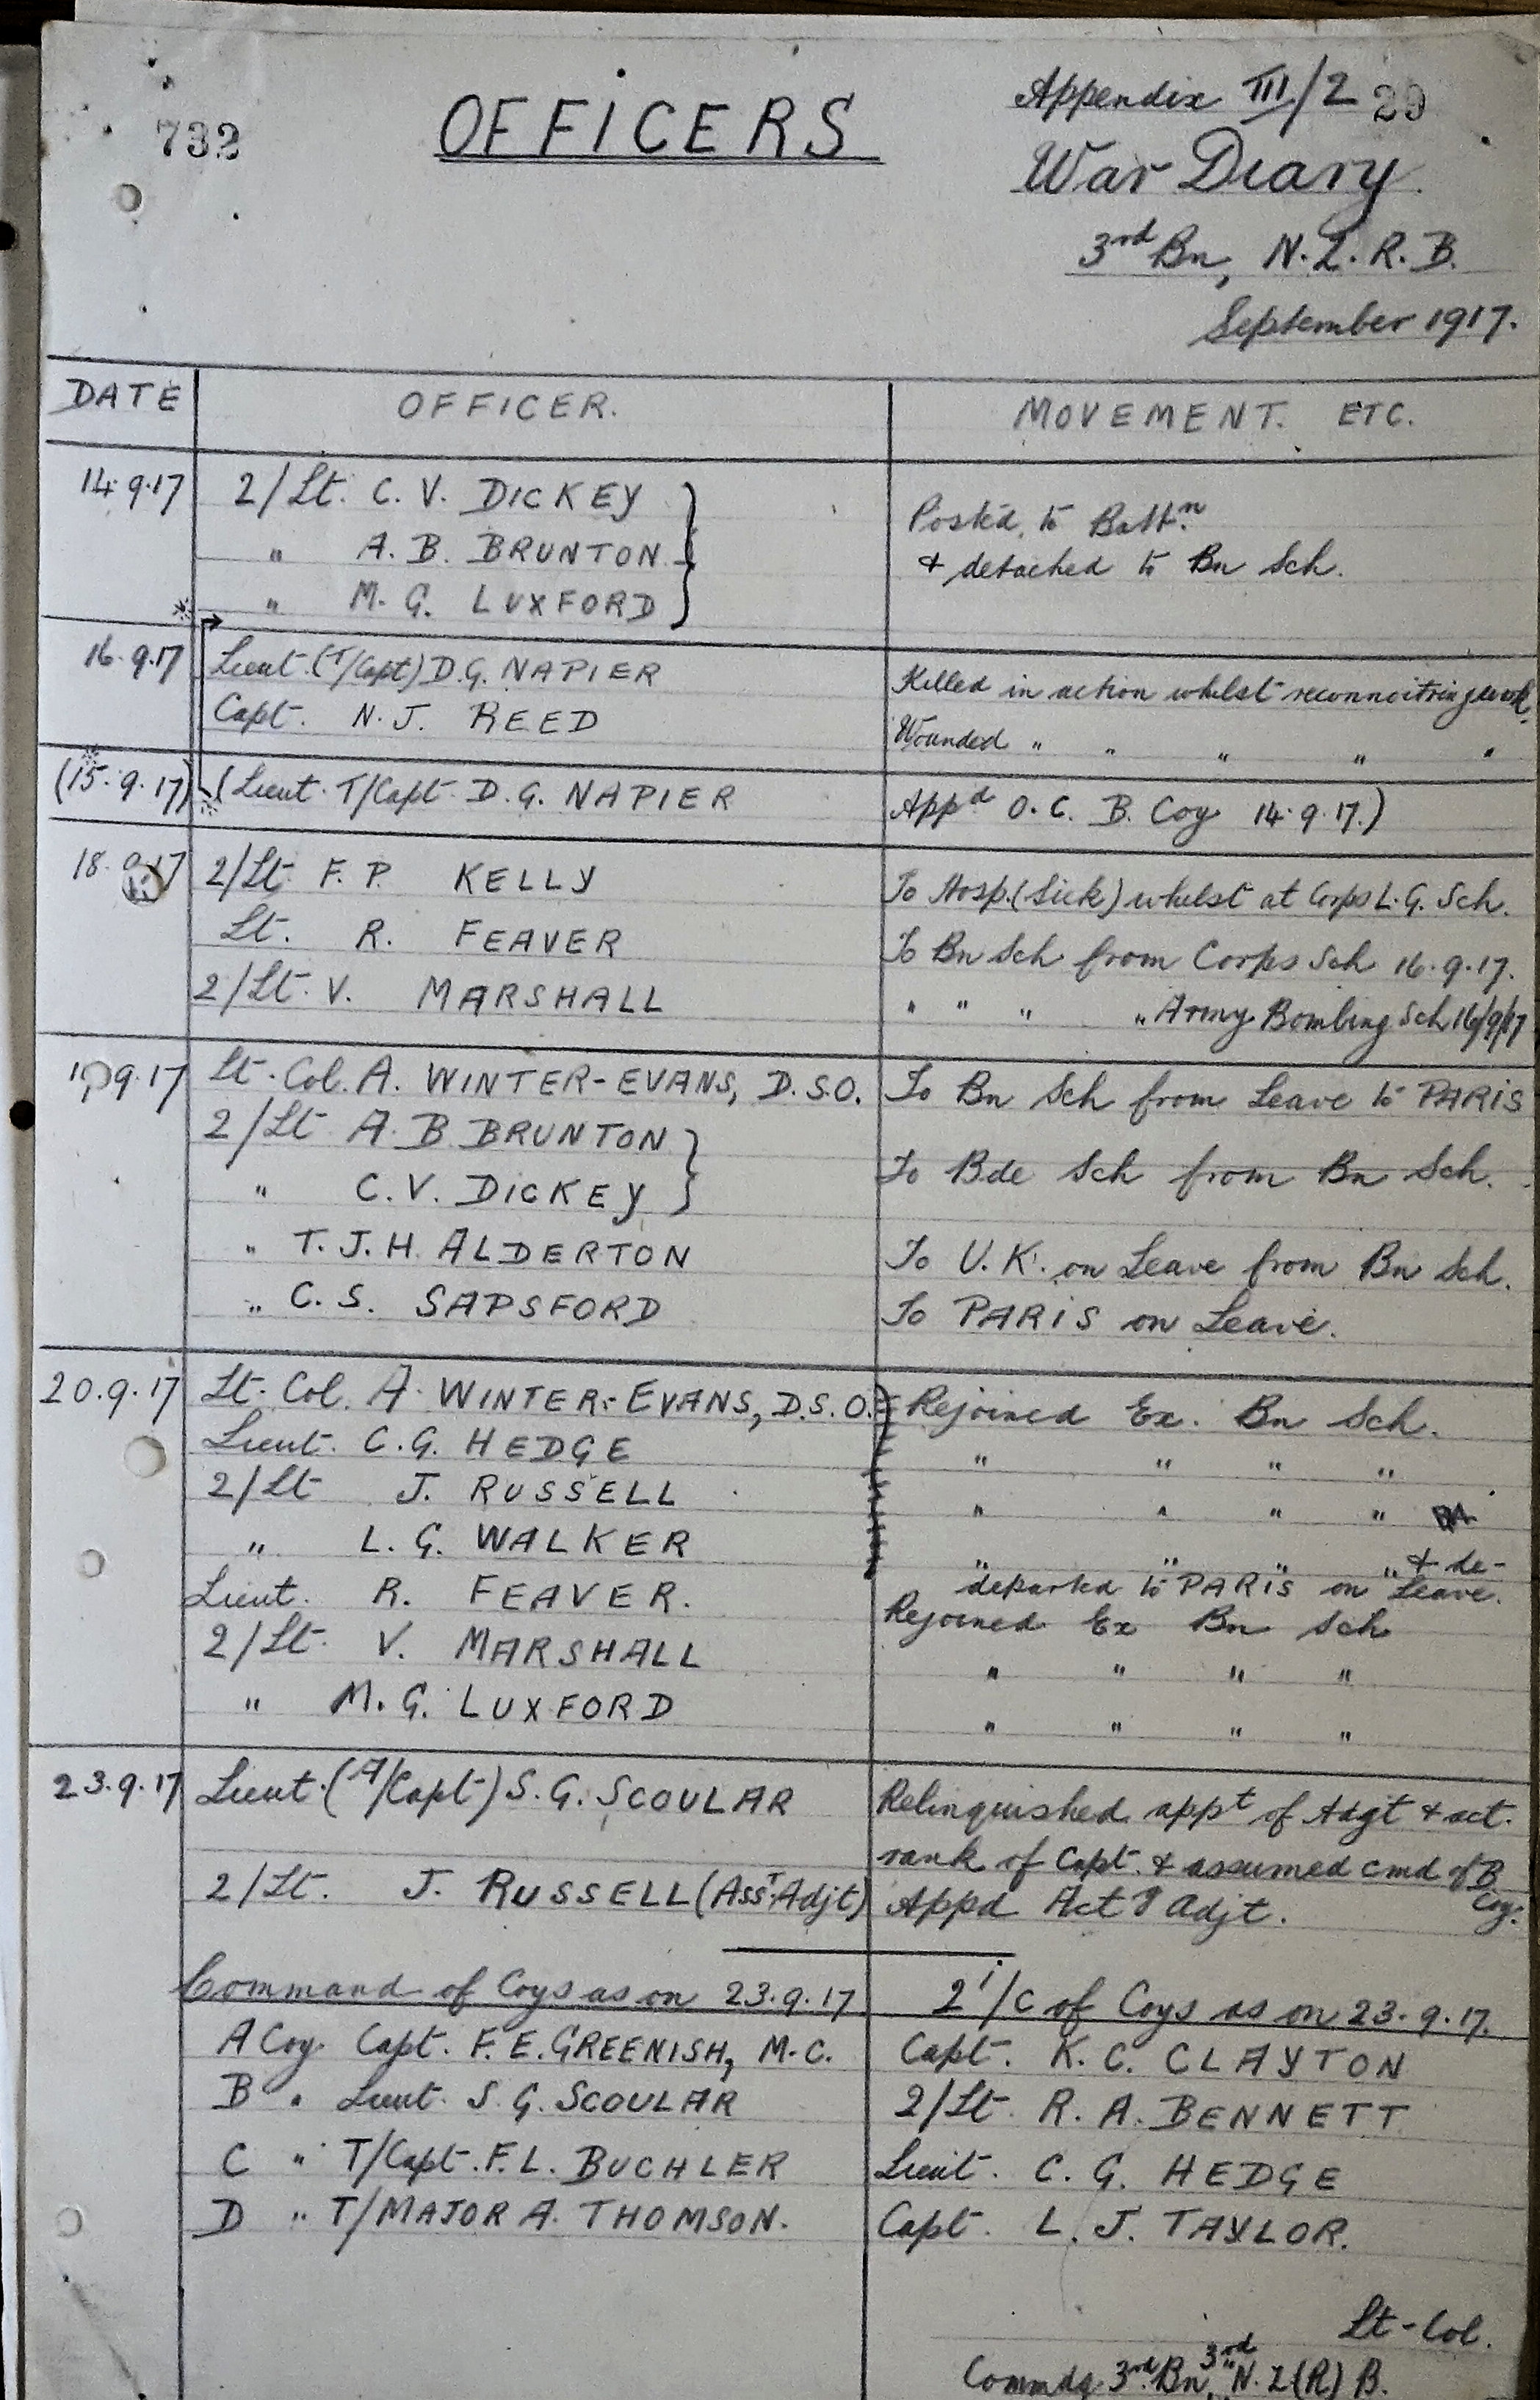 732
OFFICERS
Appendix III/2 29
War Diary
3rd Bn, N.Z.R.B.
September 1917.
DATE OFFICER. MOVEMENT. ETC.
14.9.17 2/Lt. C. V. DICKEY
" A. B. BRUNTON
" M. G. LUXFORD
Posted to Battn.
& detached to Bn Sch.
16.9.17 Lieut. (T/Capt) D.G. NAPIER Killed in action whilst reconnoitring work.
Capt. N. J. REED Wounded " " " " "
(15.9.17) (Lieut. T/Capt. D.G. NAPIER Appd O.C. B. Coy 14.9.17.)
18.9.17 2/Lt F. P. KELLY To Hosp. (Sick) whilst at Corps L.G. Sch.
Lt. R. FEAVER To Bn Sch from Corps Sch 16.9.17.
2/Lt. V. MARSHALL " " " " Army Bombing Sch 16/9/17
9.17 Lt. Col. A. WINTER-EVANS, D.S.O. To Bn Sch from Leave to PARIS
2/Lt A. B BRUNTON
" C. V. DICKEY
To Bde Sch from Bn Sch.
" T. J. H. ALDERTON To U.K. on Leave from Bn Sch.
" C. S. SAPSFORD To PARIS on Leave.
20.9.17 Lt. Col. A. WINTER-EVANS, D.S.O. Rejoined Ex. Bn Sch.
Lieut. C.G. HEDGE " " " "
2/Lt J. RUSSELL " " " "
" L. G. WALKER " " " " & de-
departed to PARIS on Leave.
Lieut. R. FEAVER. Rejoined Ex Bn Sch
2/Lt. V. MARSHALL " " " "
" M. G. LUXFORD " " " "
23.9.17 Lieut. (A/Capt) S. G. SCOULAR Relinquished appt of Adjt & act.
rank of Capt. & assumed cmd of B
Coy.
2/Lt. J. RUSSELL (Asst. Adjt) Appd Actg Adjt.
Command of Coys as on 23.9.17 2i/c of Coys as on 23.9.17.
A Coy. Capt. F. E. GREENISH, M.C. Capt. K. C. CLAYTON
B " Lieut. S. G. SCOULAR 2/Lt. R. A. BENNETT
C " T/Capt. F. L. BUCHLER Lieut. C. G. HEDGE
D " T/MAJOR A. THOMSON. Capt. L. J. TAYLOR.
Lt-Col.
3rd
Commdg 3rd Bn, N.Z.(R) B.